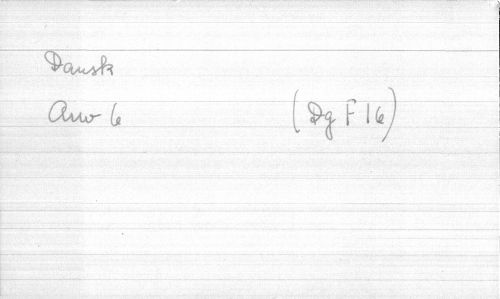 Dansk
Arw 6 (Dg F 16)